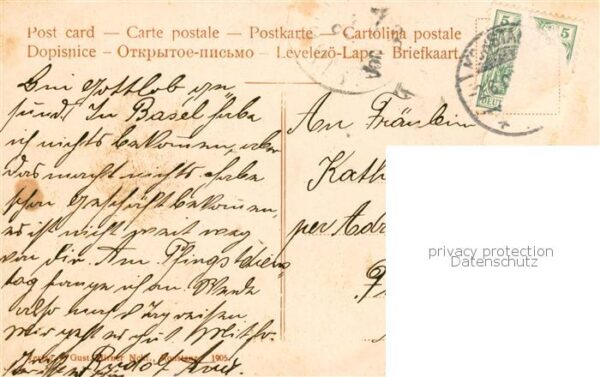 Post card — Carte postale — Postkarte — Cartolina postale
Dopisnice — Открытое-письмо — Levelező-Lap — Briefkaart
5 5
Bin Gottlob ge-
sund. In Basel habe
ich nichts bekommen, aber
das macht nichts, habe
schon Geschäft bekommen,
es ist nicht weit weg
von dir. Am Pfingstdiens
tag fange ich an. Werde
also
mir geht es gut
Rudolf
An Fräulein
Kath
per Adr
privacy protection
Datenschutz
Gust. Nchf., Konstanz, 1905.